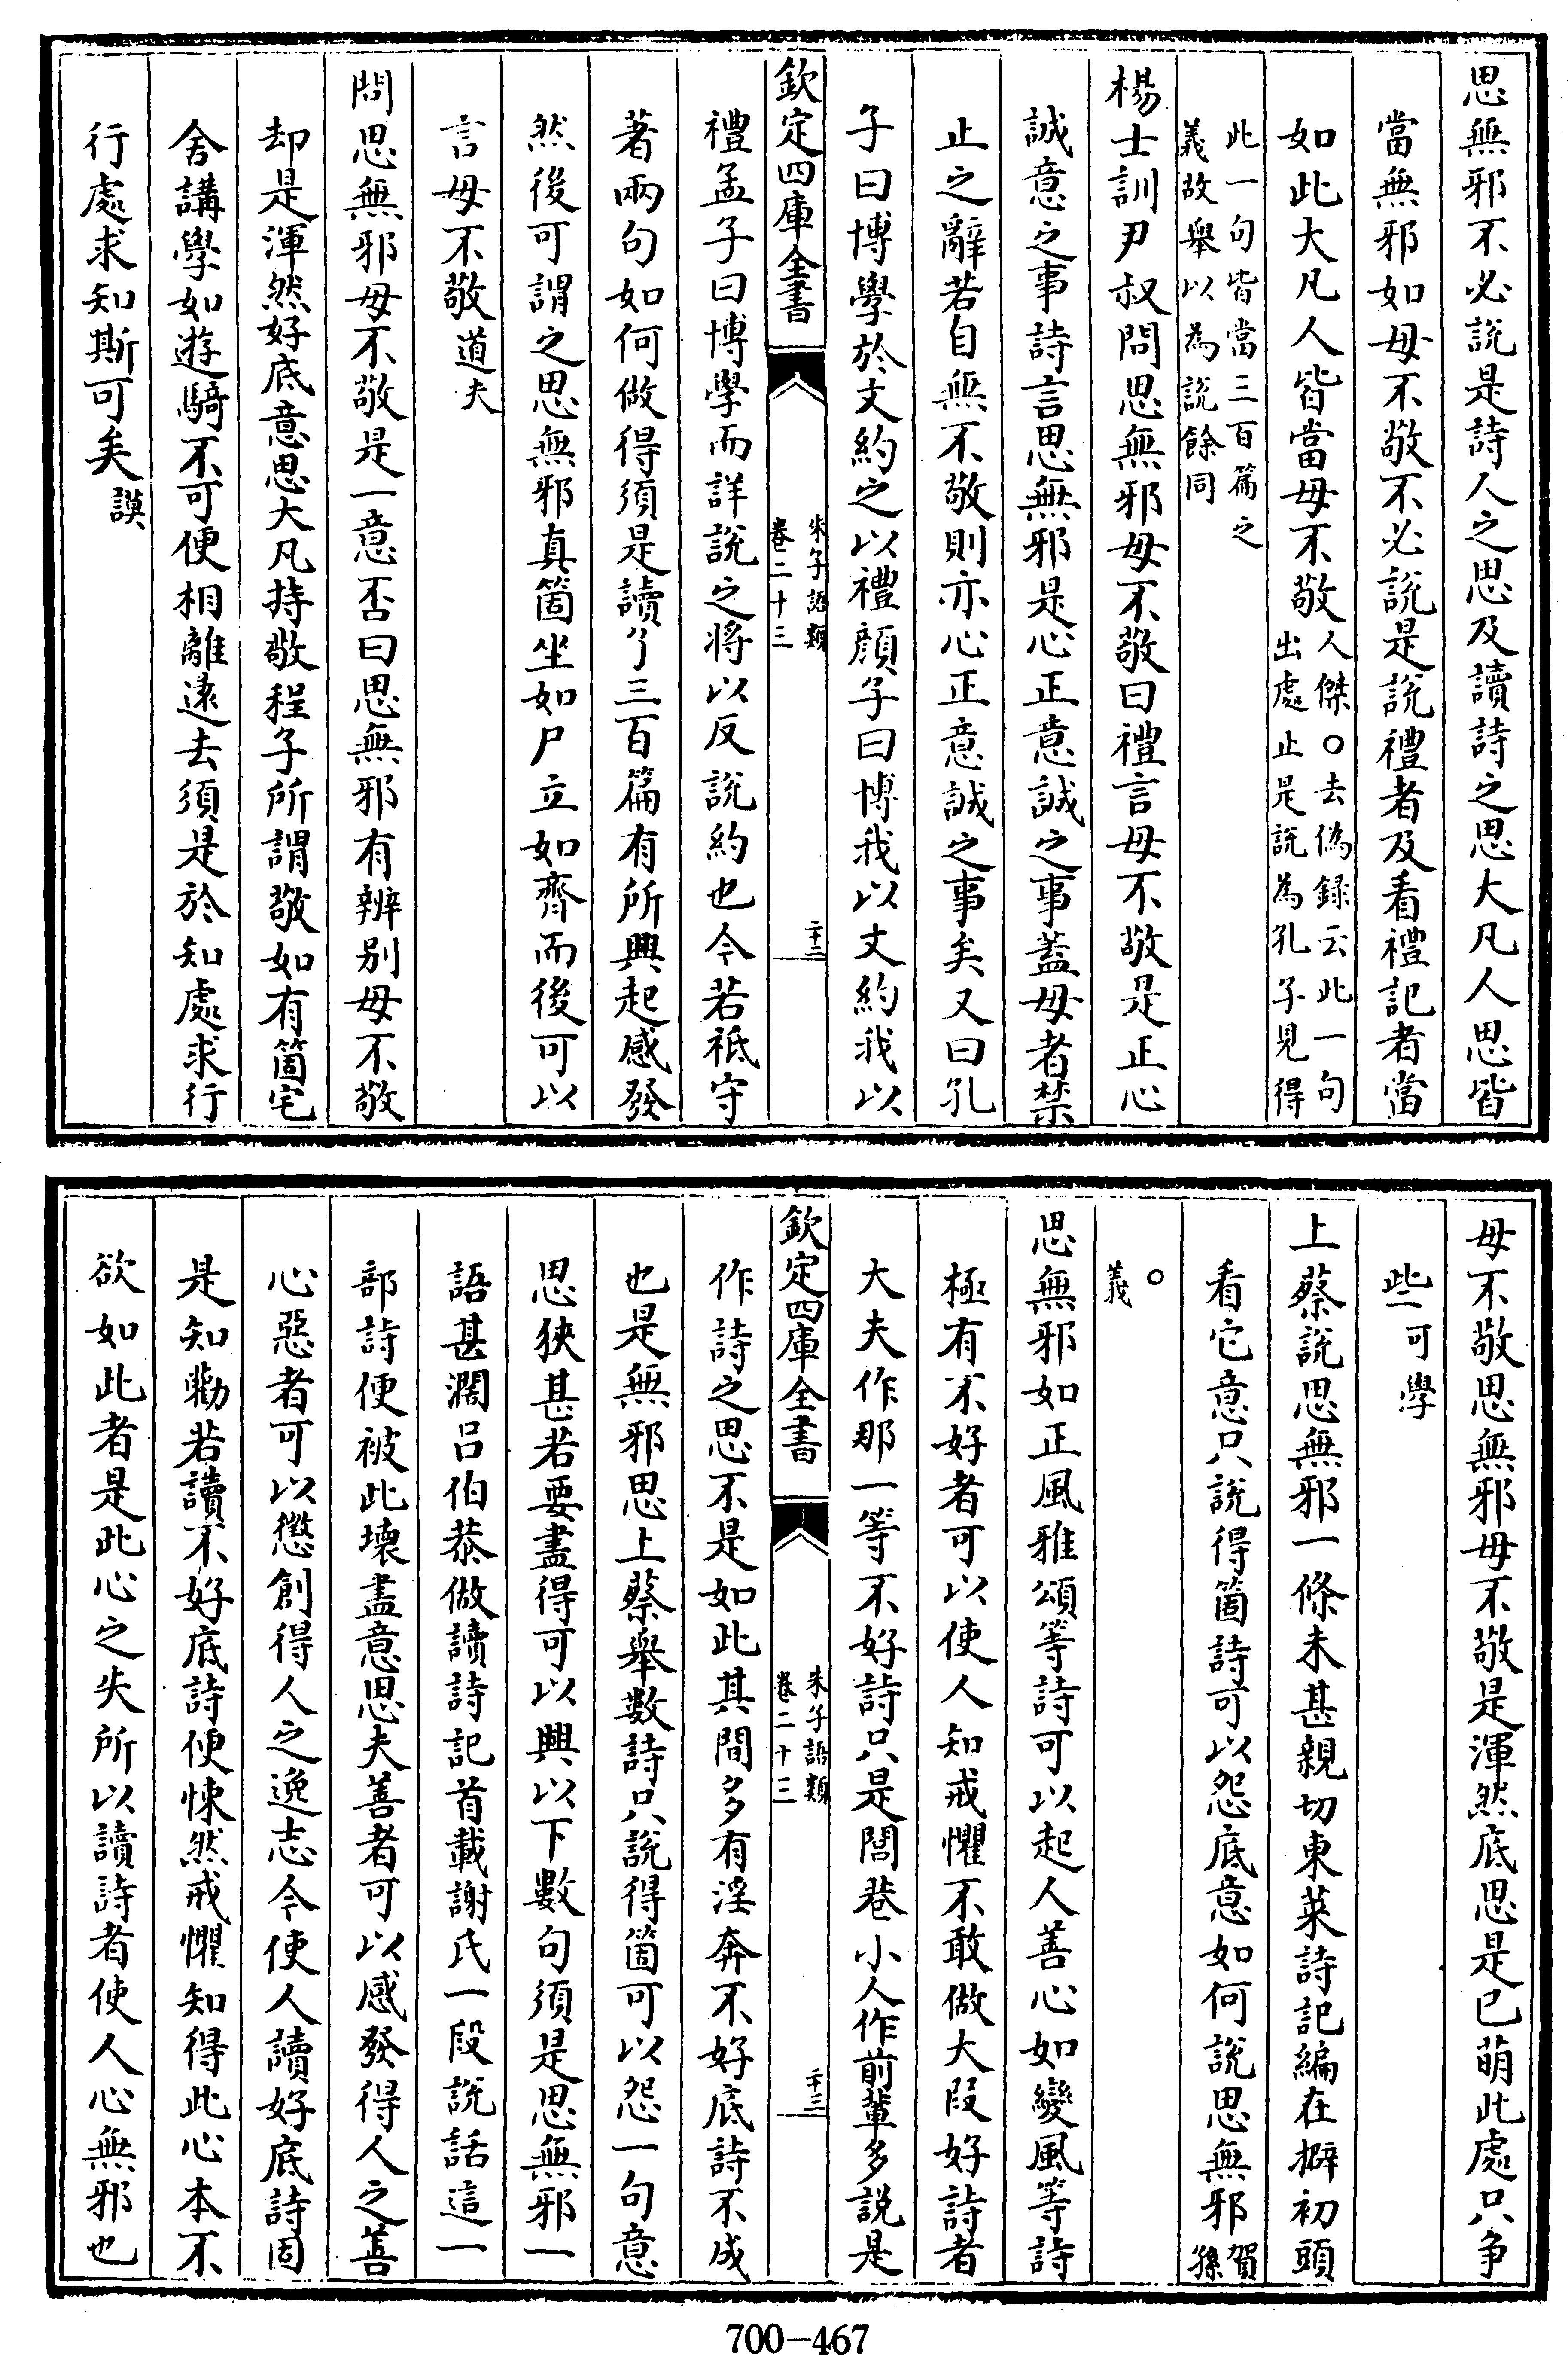 思無邪不必說是詩人之思及讀詩之思大凡人思皆
當無邪如毋不敬不必說是說禮者及看禮記者當
如此大凡人皆當毋不敬人傑○去偽録云此一句出處止是說為孔子見得
此一句皆當三百篇之義故舉以為説餘同
楊士訓尹叔問思無邪毋不敬曰禮言毋不敬是正心
誠意之事詩言思無邪是心正意誠之事蓋毋者禁
止之辭若自無不敬則亦心正意誠之事矣又曰孔
子曰博學於文約之以禮顔子曰博我以文約我以
欽定四庫全書
朱子語類
卷二十三
二十二
禮孟子曰博學而詳說之將以反說約也今若祇守
著兩句如何做得須是讀了三百篇有所興起感發
然後可謂之思無邪真箇坐如尸立如齊而後可以
言毋不敬道夫
問思無邪毋不敬是一意否曰思無邪有辨别毋不敬
却是渾然好底意思大凡持敬程子所謂敬如有箇宅
舍講學如遊騎不可便相離遠去須是於知處求行
行處求知斯可矣謨
毋不敬思無邪毋不敬是渾然底思是已萌此處只争
些可學
上蔡說思無邪一條未甚親切東萊詩記編在擗初頭
看它意只說得箇詩可以怨底意如何說思無邪賀孫
○
義
思無邪如正風雅頌等詩可以起人善心如變風等詩
極有不好者可以使人知戒懼不敢做大段好詩者
大夫作那一等不好詩只是閭巷小人作前輩多説是
欽定四庫全書
朱子語類
卷二十三
二十三
作詩之思不是如此其間多有淫奔不好底詩不成
也是無邪思上蔡舉數詩只說得箇可以怨一句意
思狹甚若要盡得可以興以下數句須是思無邪一
語甚濶吕伯恭做讀詩記首載謝氏一段説話這一
部詩便被此壞盡意思夫善者可以感發得人之善
心惡者可以懲創得人之逸志今使人讀好底詩固
是知勸若讀不好底詩便悚然戒懼知得此心本不
欲如此者是此心之失所以讀詩者使人心無邪也
700-467